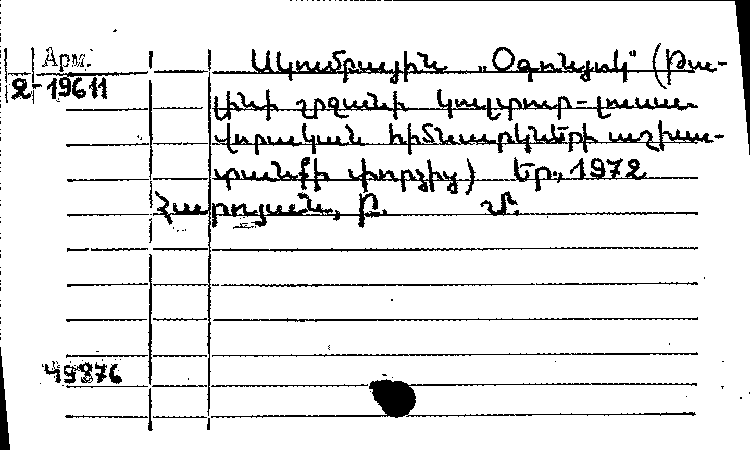 Арм.
2-19611
Ակումբային „Օգոնյոկ" (Թա-
լինի շրջանի կուլտուր-լուսա-
վորական հիմնարկների աշխա-
տանքի փորձից) Եր., 1972
Հարոյան, Բ. մ.
49876